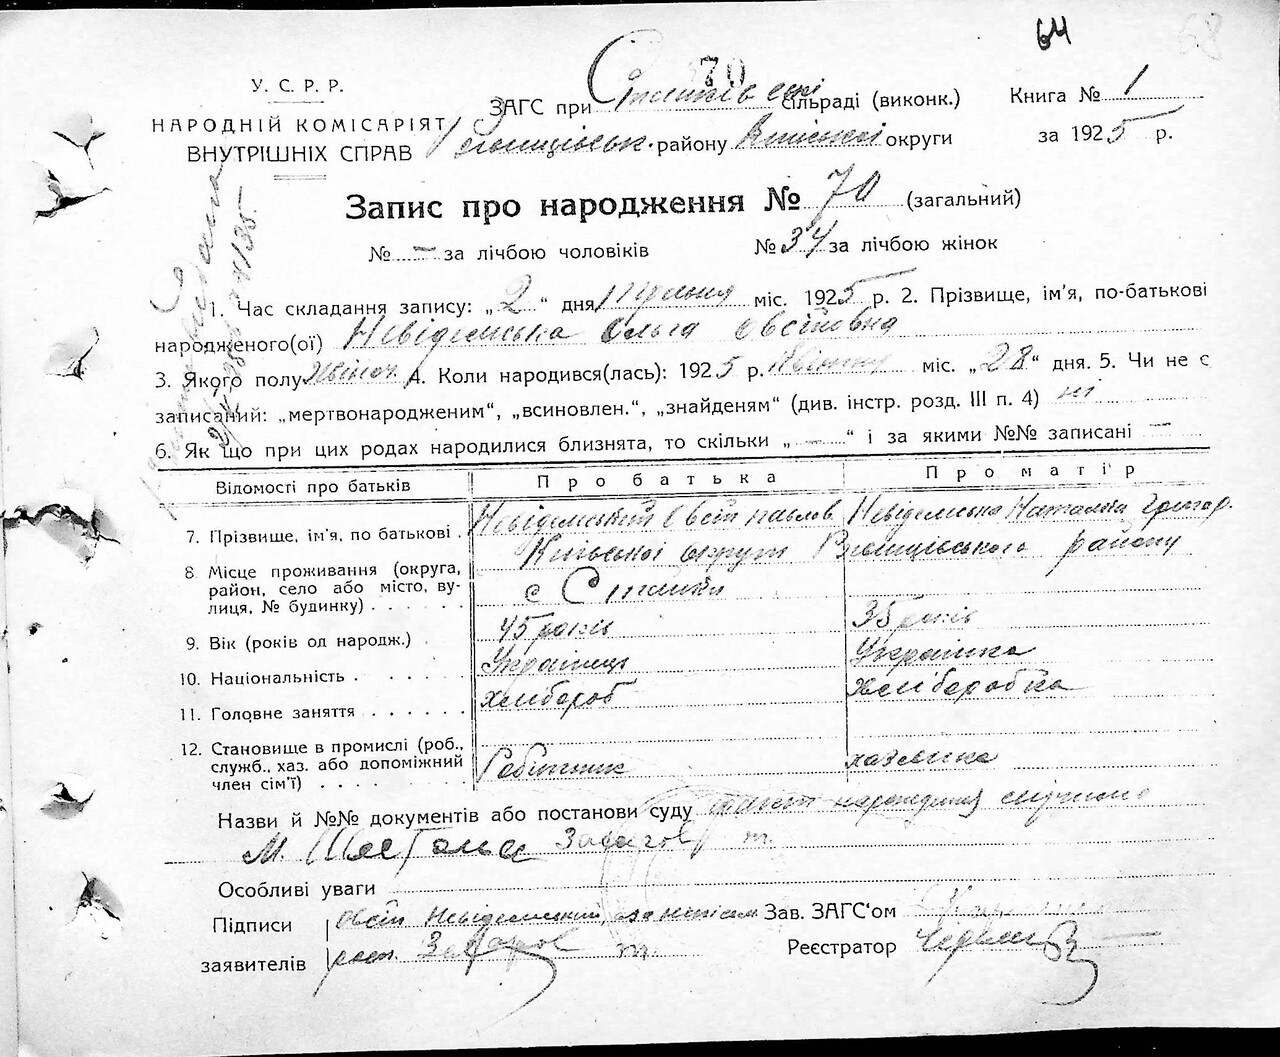 64
68
70
У. С. Р. Р.
НАРОДНІЙ КОМІСАРІЯТ
ВНУТРІШНІХ СПРАВ
ЗАГС при Стайків ські сільраді (виконк.)
району Київської округи
Книга № 1
за 1925 р.
Запис про народження № 70 (загальний)
№ — за лічбою чоловіків № 34 за лічбою жінок
1. Час складання запису: „ 2 “ дня Грудня міс. 1925 р. 2. Прізвище, ім’я, по-батькові
народженого(ої) Невідемська Ольга Овсіївна
3. Якого полу жіноч. 4. Коли народився(лась): 1925 р. міс. „28“ дня. 5. Чи не є
записаний: „мертвонародженим“, „всиновлен.“, „знайденям“ (див. інстр. розд. III п. 4) ні
6. Як що при цих родах народилися близнята, то скільки „ — “ і за якими №№ записані —
Відомості про батьків Про батька Про матір
7. Прізвище, ім’я, по батькові . Невідемський Овсій павлов Невідемська Наталка Григор.
8. Місце проживання (округа, район, село або місто, вулиця, № будинку) Київської округи району
с Стайки
9. Вік (років од народж.) . 45 років 35 років
10. Національність Українець Українка
11. Головне заняття хлібороб хліборобка
12. Становище в промислі (роб., служб., хаз. або допоміжний член сім’ї) Робітник хазяйка
Назви й №№ документів або постанови суду факт народження
М. Захаров т.
Особливі уваги
Підписи Овсій Невідемський, Зав. ЗАГС‘ом
заявителів Захаров Реєстратор